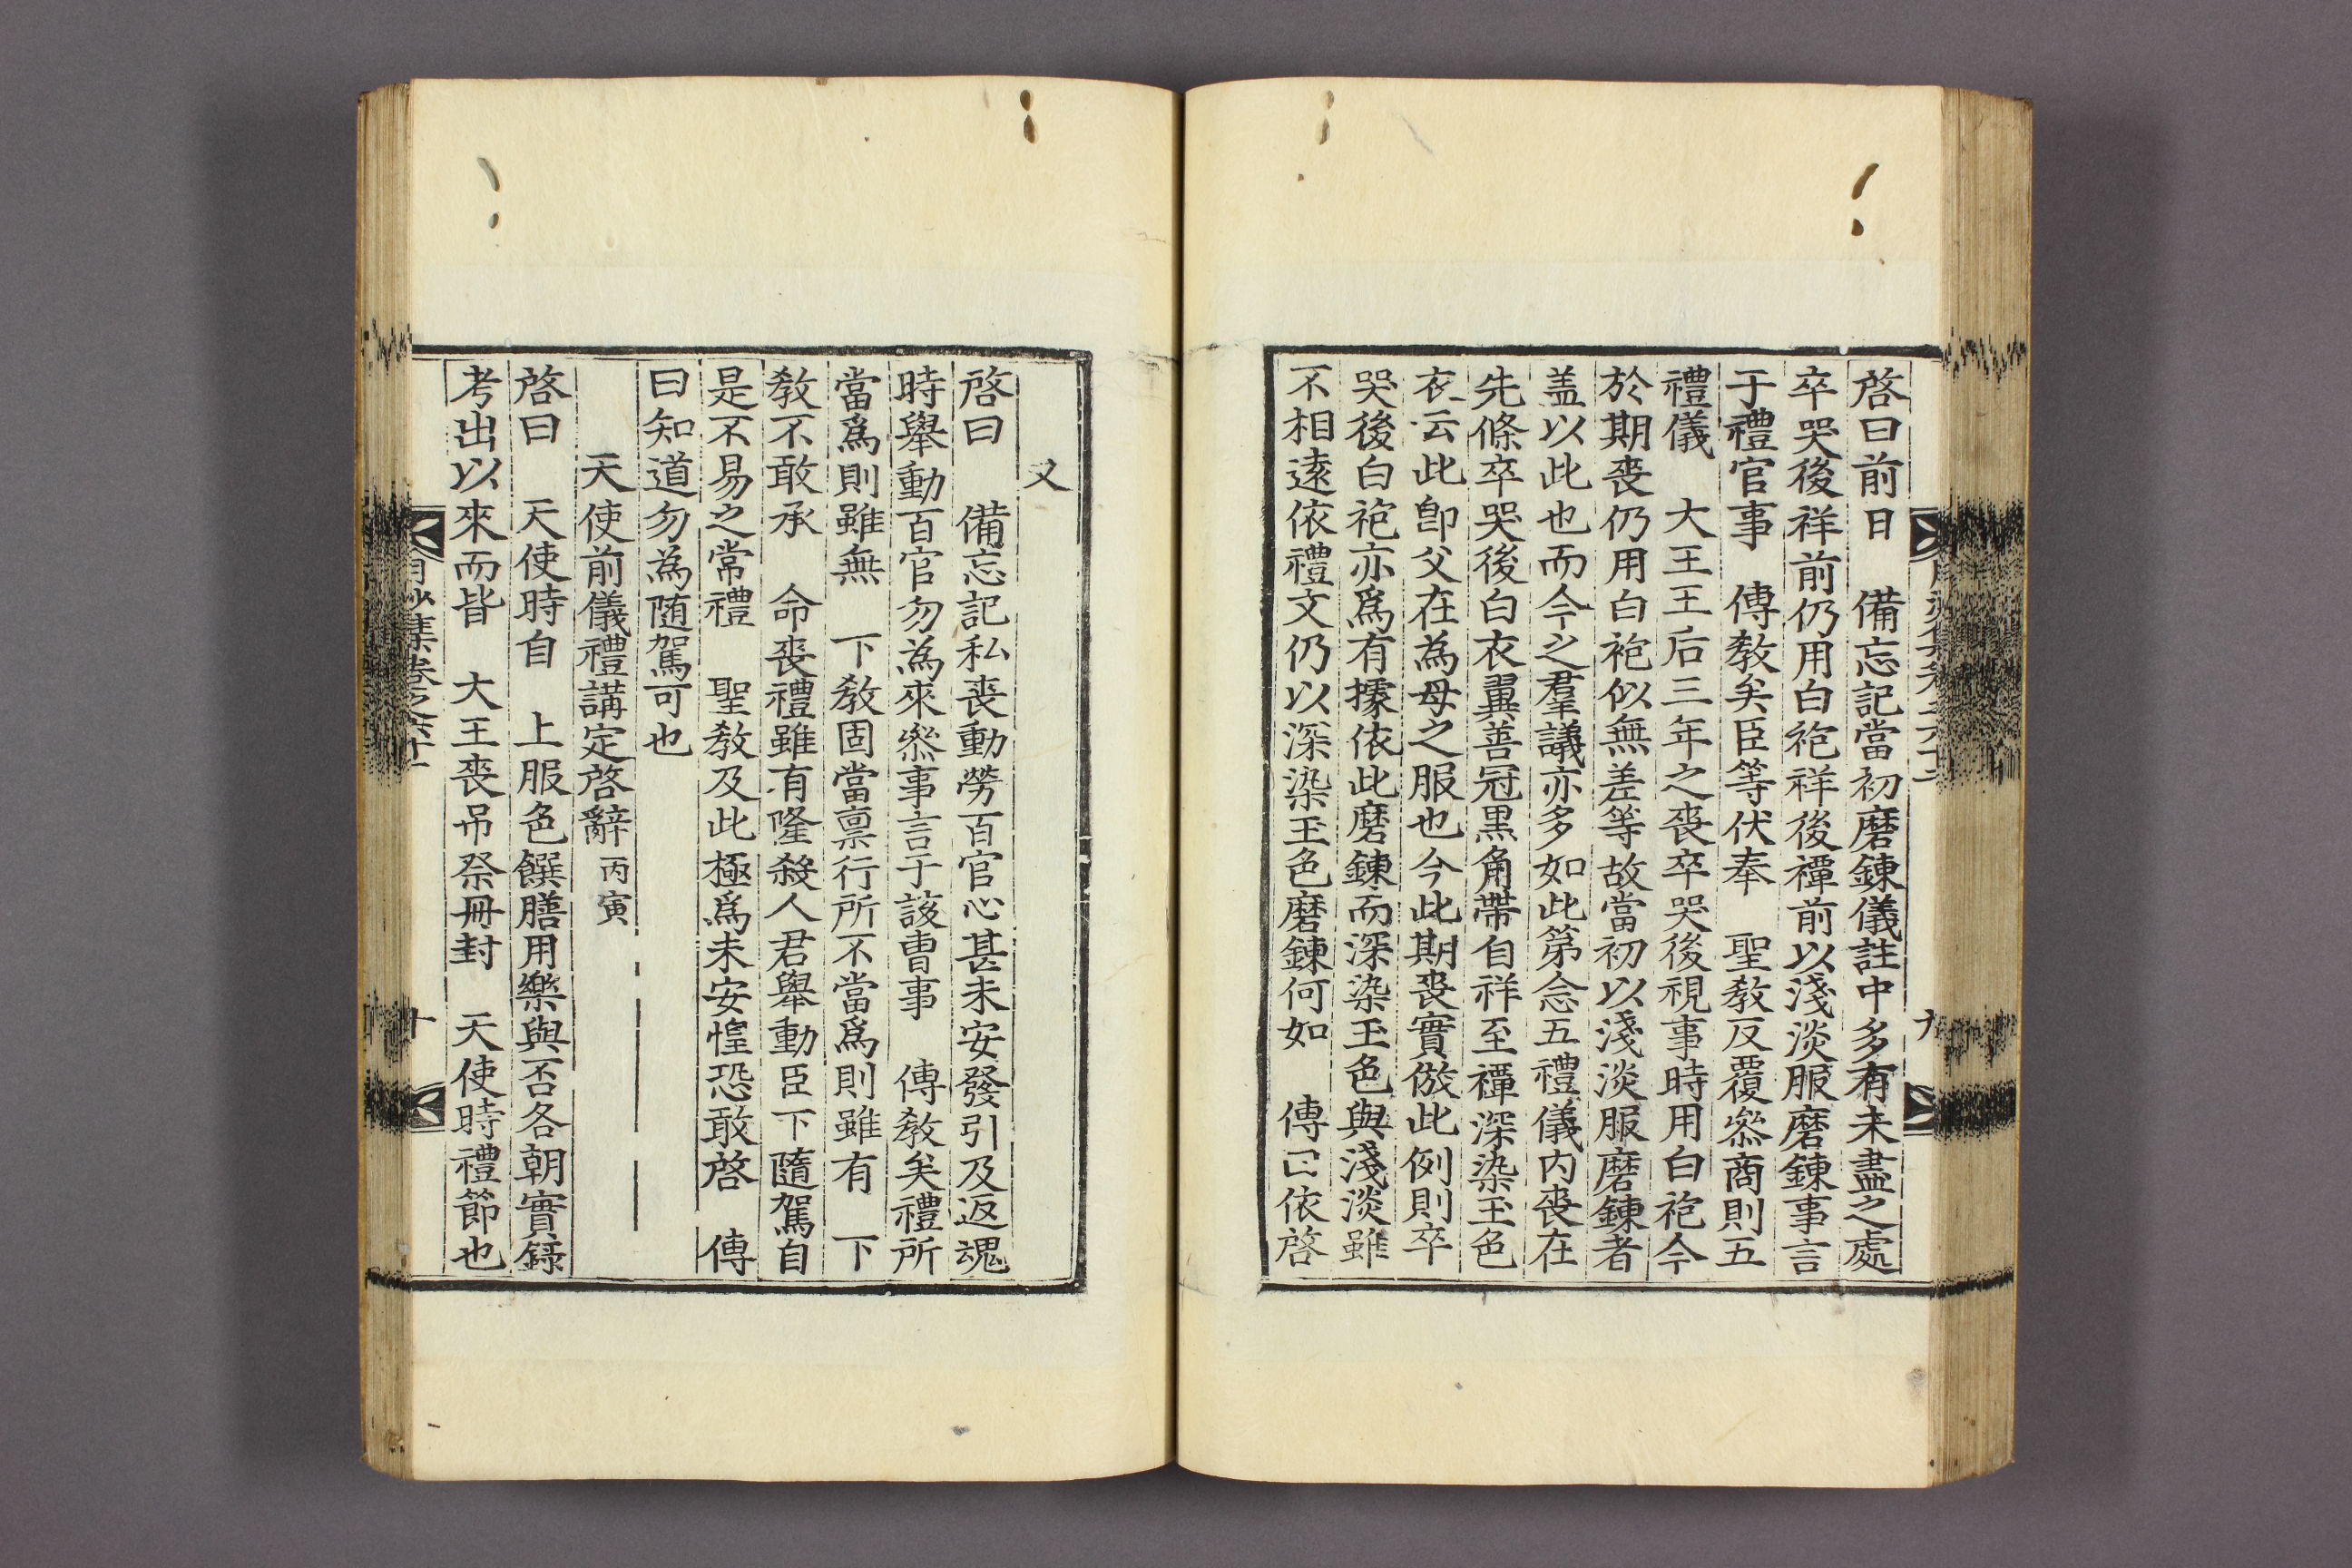 啓曰前日 備忘記當初磨鍊儀註中多有未盡之處
卒哭後祥前仍用白袍祥後禫前以淺淡服磨鍊事言
于禮官事 傳教矣臣等伏奉 聖教反覆叅商則五
禮儀 大王王后三年之喪卒哭後視事時用白袍今
於期喪仍用白袍似無差等故當初以淺淡服磨鍊者
盖以此也而今之羣議亦多如此第念五禮儀内喪在
先條卒哭後白衣翼善冠黒角帶自祥至禫深染玉色
衣云此卽父在為母之服也今此期喪實倣此例則卒
哭後白袍亦爲有據依此磨鍊而深染玉色與淺淡雖
不相遠依禮文仍以深染玉色磨鍊何如 傳曰依啓
又
啓曰 備忘記私喪動勞百官心甚未安發引及返魂
時舉動百官勿為來叅事言于該曹事 傳教矣禮所
當爲則雖無 下教固當禀行所不當爲則雖有 下
教不敢承 命喪禮雖有隆殺人君舉動臣下隨駕自
是不易之常禮 聖教及此極爲未安惶恐敢啓 傳
曰知道勿為随駕可也
天使前儀禮講定啓辭 丙寅
啓曰 天使時自 上服色饌膳用樂與否各朝實録
考出以來而皆 大王喪吊祭冊封 天使時禮節也